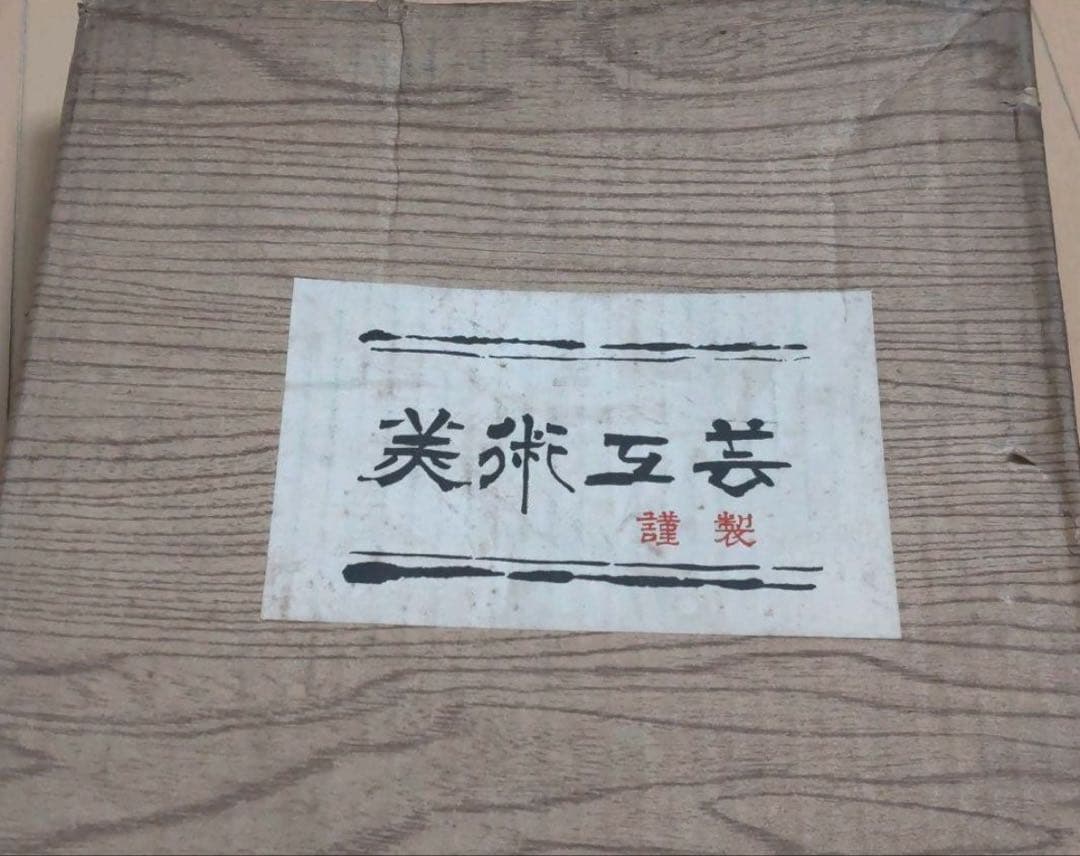 美術工芸
謹製